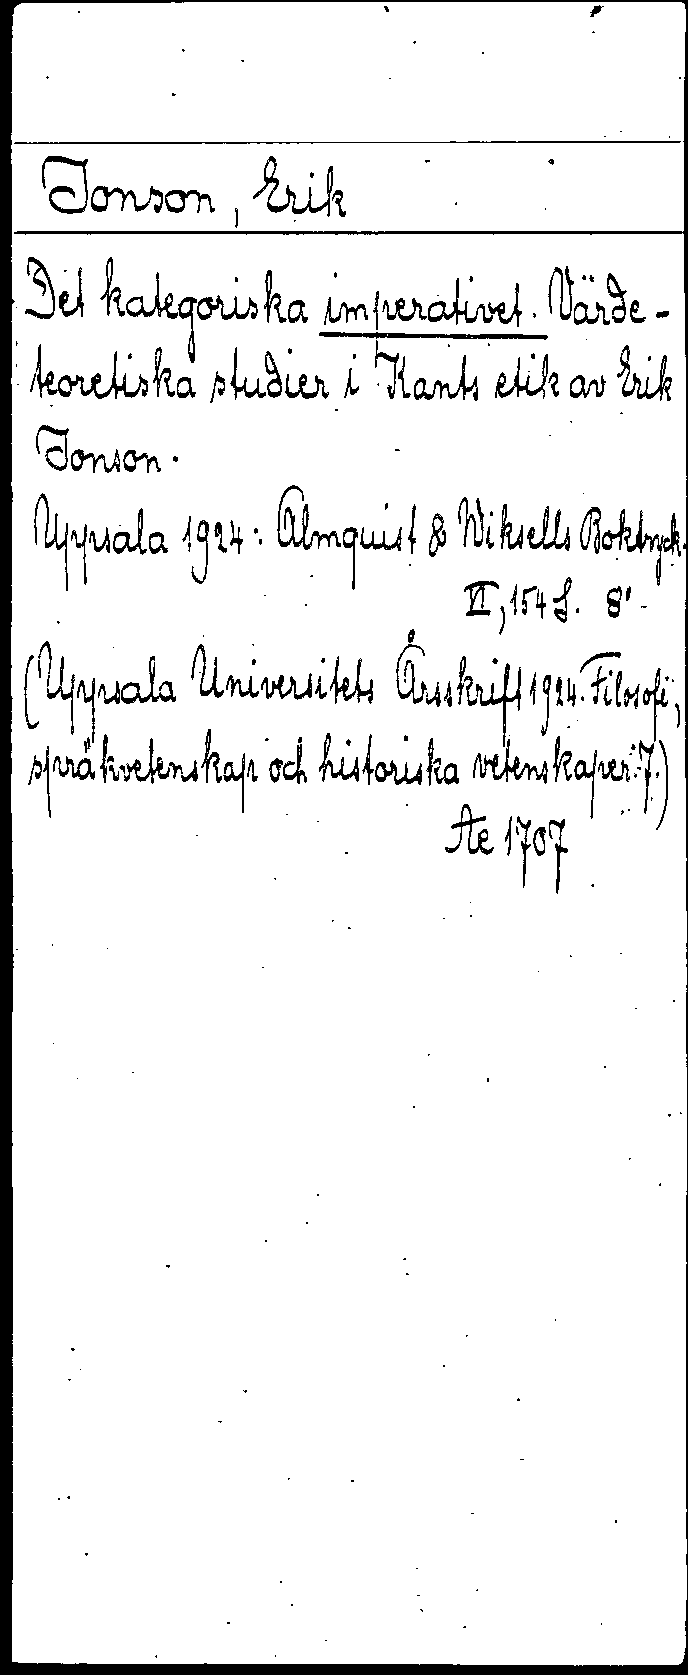 Jonson, Erik
Det kategoriska imperativet. Värde-
teoretiska studier i Kants etik av Erik
Jonson.
Uppsala 1924: Almquist & Wiksells Boktryck.
VI, 154 S. 8'
(Uppsala Universitets Årsskrift 1924. Filosofi,
språkvetenskap och historiska vetenskaper. 7.)
Ae 1707